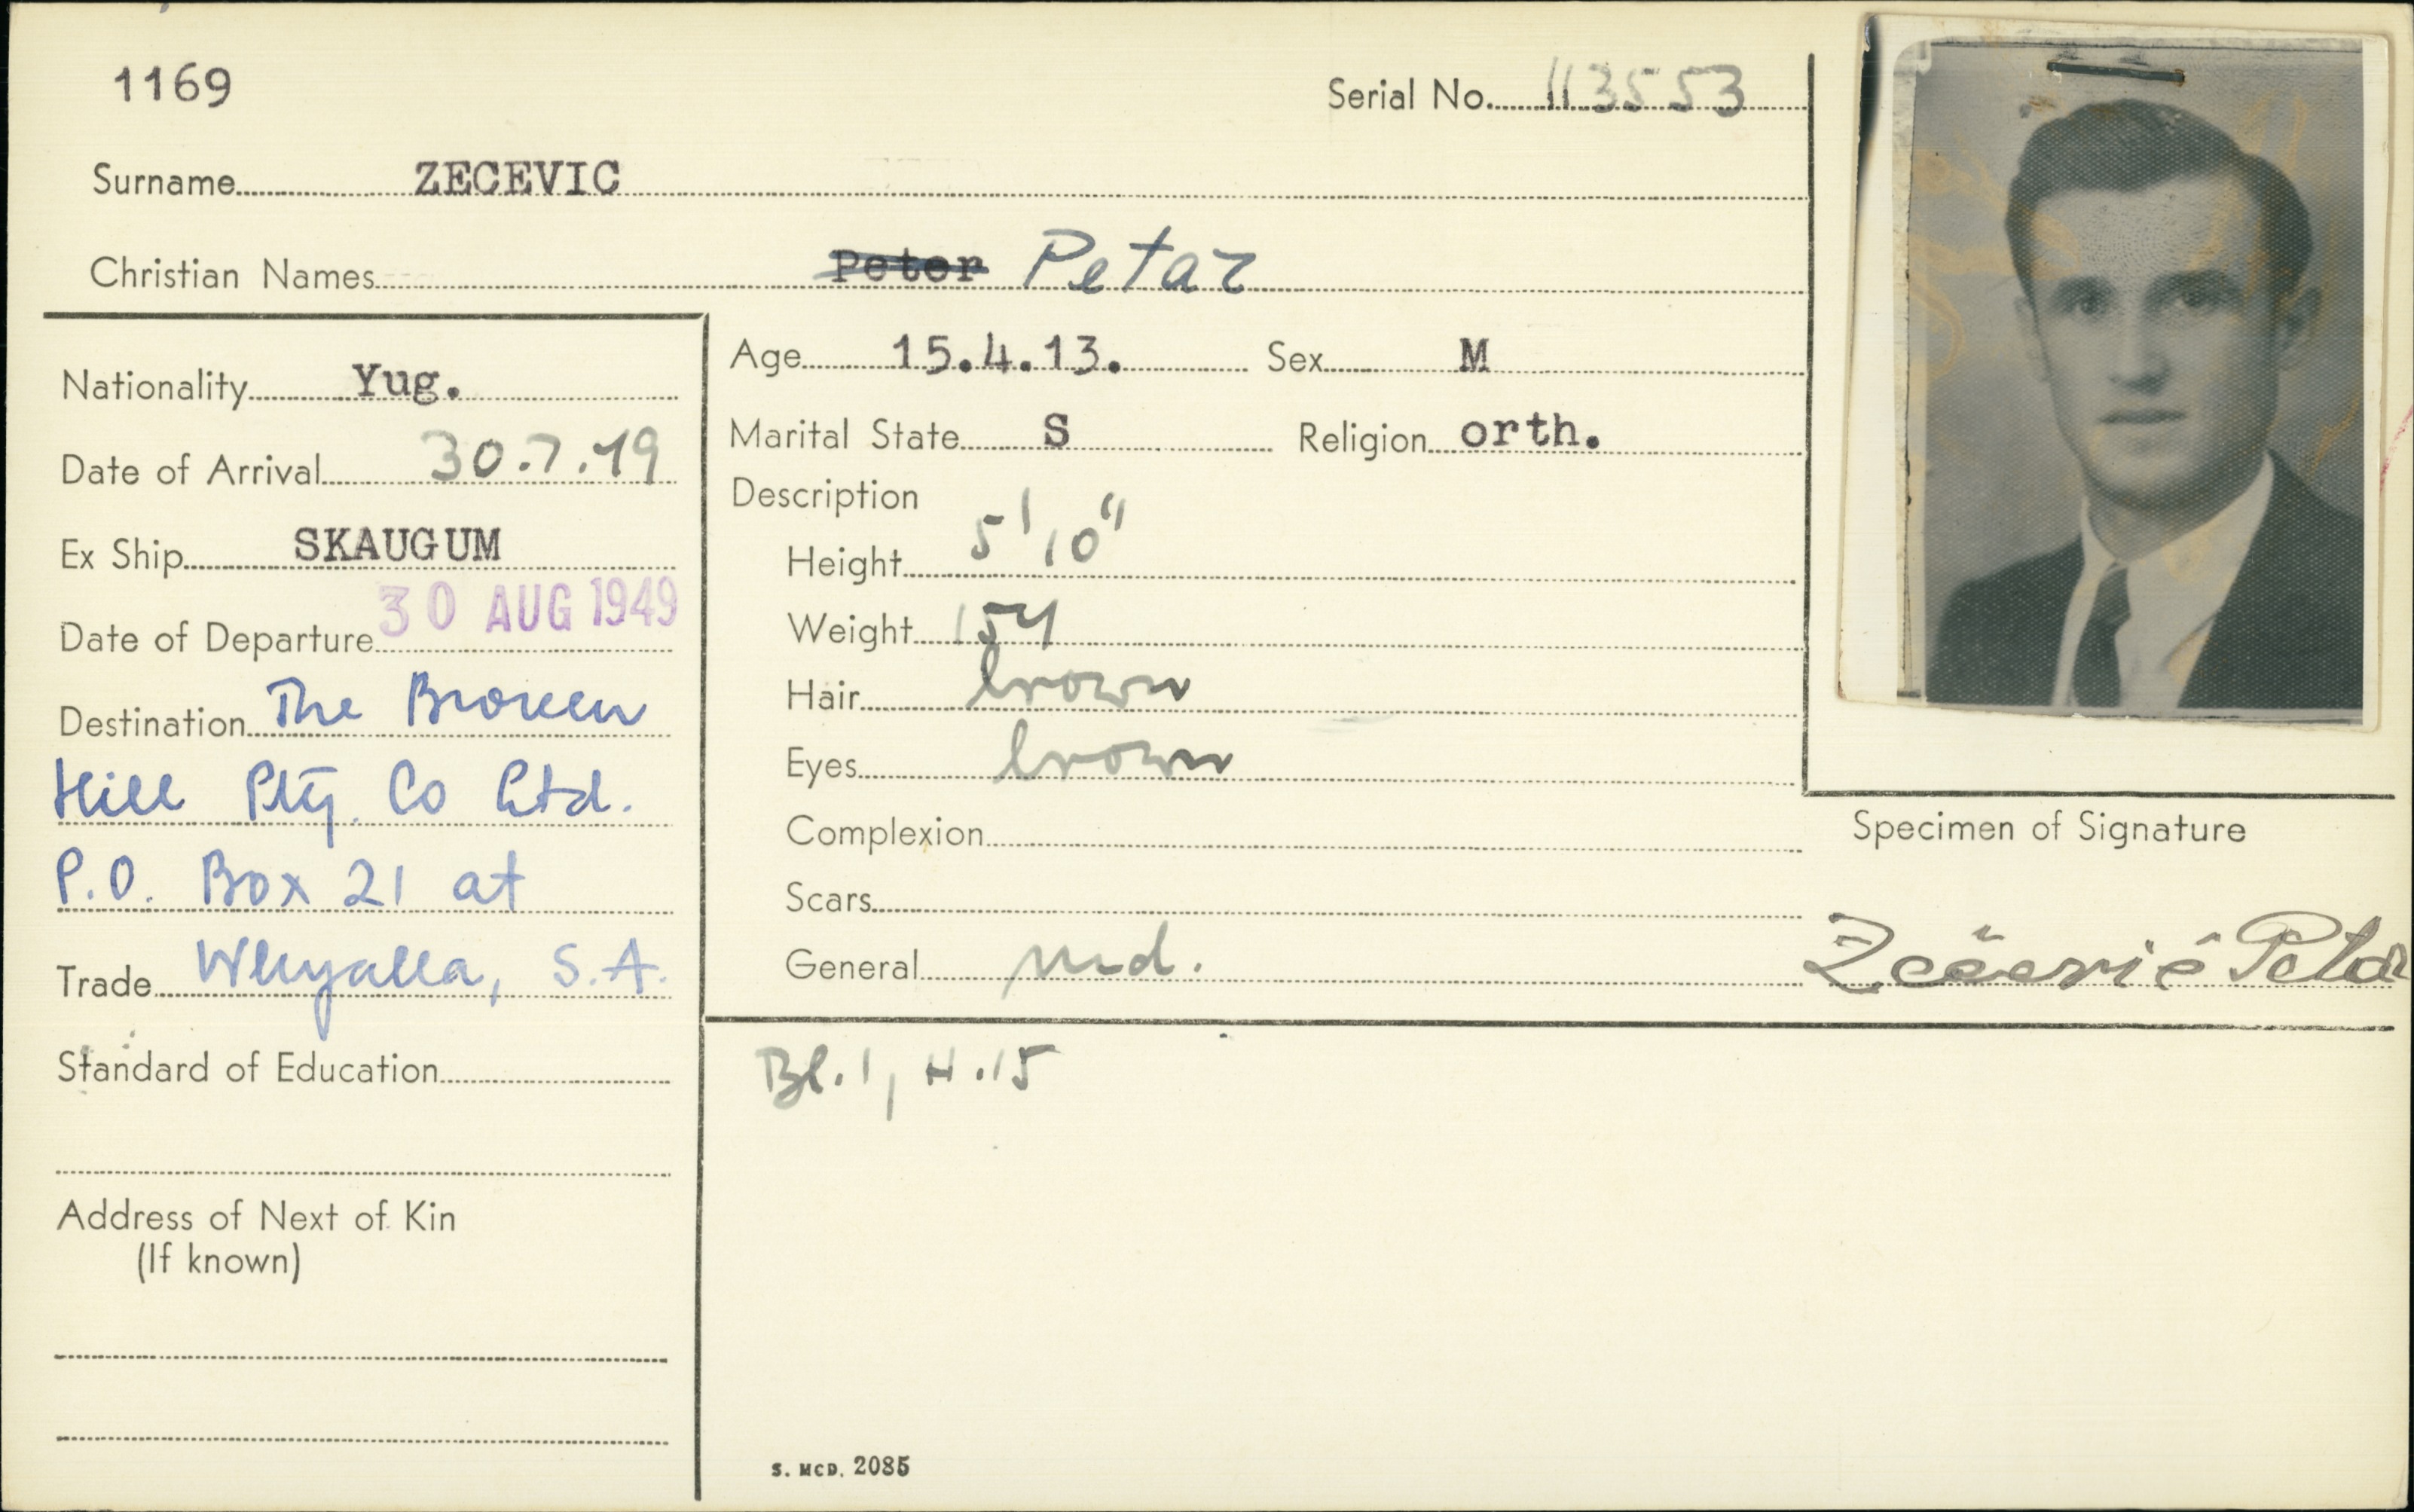 1169
Serial No. 113553
Surname ZECEVIC
Christian Names Peter Petar
Nationality Yug.
Date of Arrival 30.7.49
Ex Ship SKAUGUM
Date of Departure 30 AUG 1949
Destination The Broken
Hill Pty. Co Ltd.
P.O. Box 21 at
Trade Whyalla, S.A.
Standard of Education
Address of Next of Kin
(If known)
Age 15.4.13. Sex M
Marital State S Religion orth.
Description
Height 5'10"
Weight 154
Hair brown
Eyes brown
Complexion
Scars
General med.
Specimen of Signature
Zečević Petar
Bl. 1, H. 15
S. McD. 2085